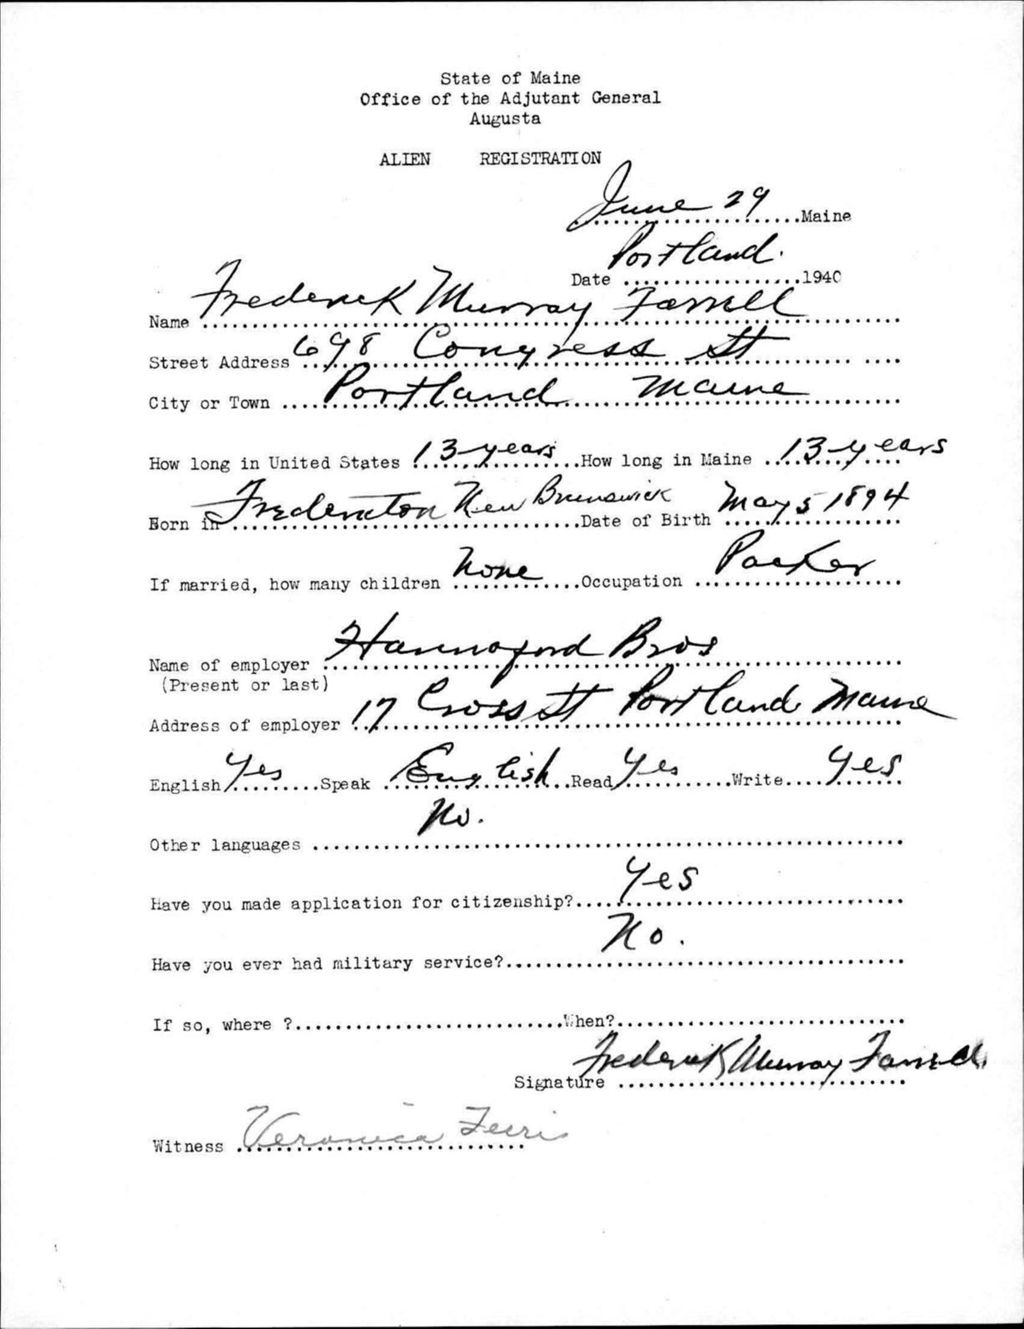 State of Maine
Office of the Adjutant General
Augusta
ALIEN REGISTRATION
June 29 Maine
Portland.
Date 1940
Name Frederick Murray Farrell
Street Address 698 Congress St
City or Town Portland Maine
How long in United States 13 years How long in Maine 13 years
Born in Fredericton New Brunswick Date of Birth May 5 1894
If married, how many children None Occupation Packer
Name of employer Hannaford Bros
(Present or last)
Address of employer 17 Cross St Portland Maine
English Yes Speak English Read Yes Write Yes
Other languages No.
Have you made application for citizenship? Yes
Have you ever had military service? No.
If so, where ? When?
Signature Frederick Murray Farrell
Witness Veronica